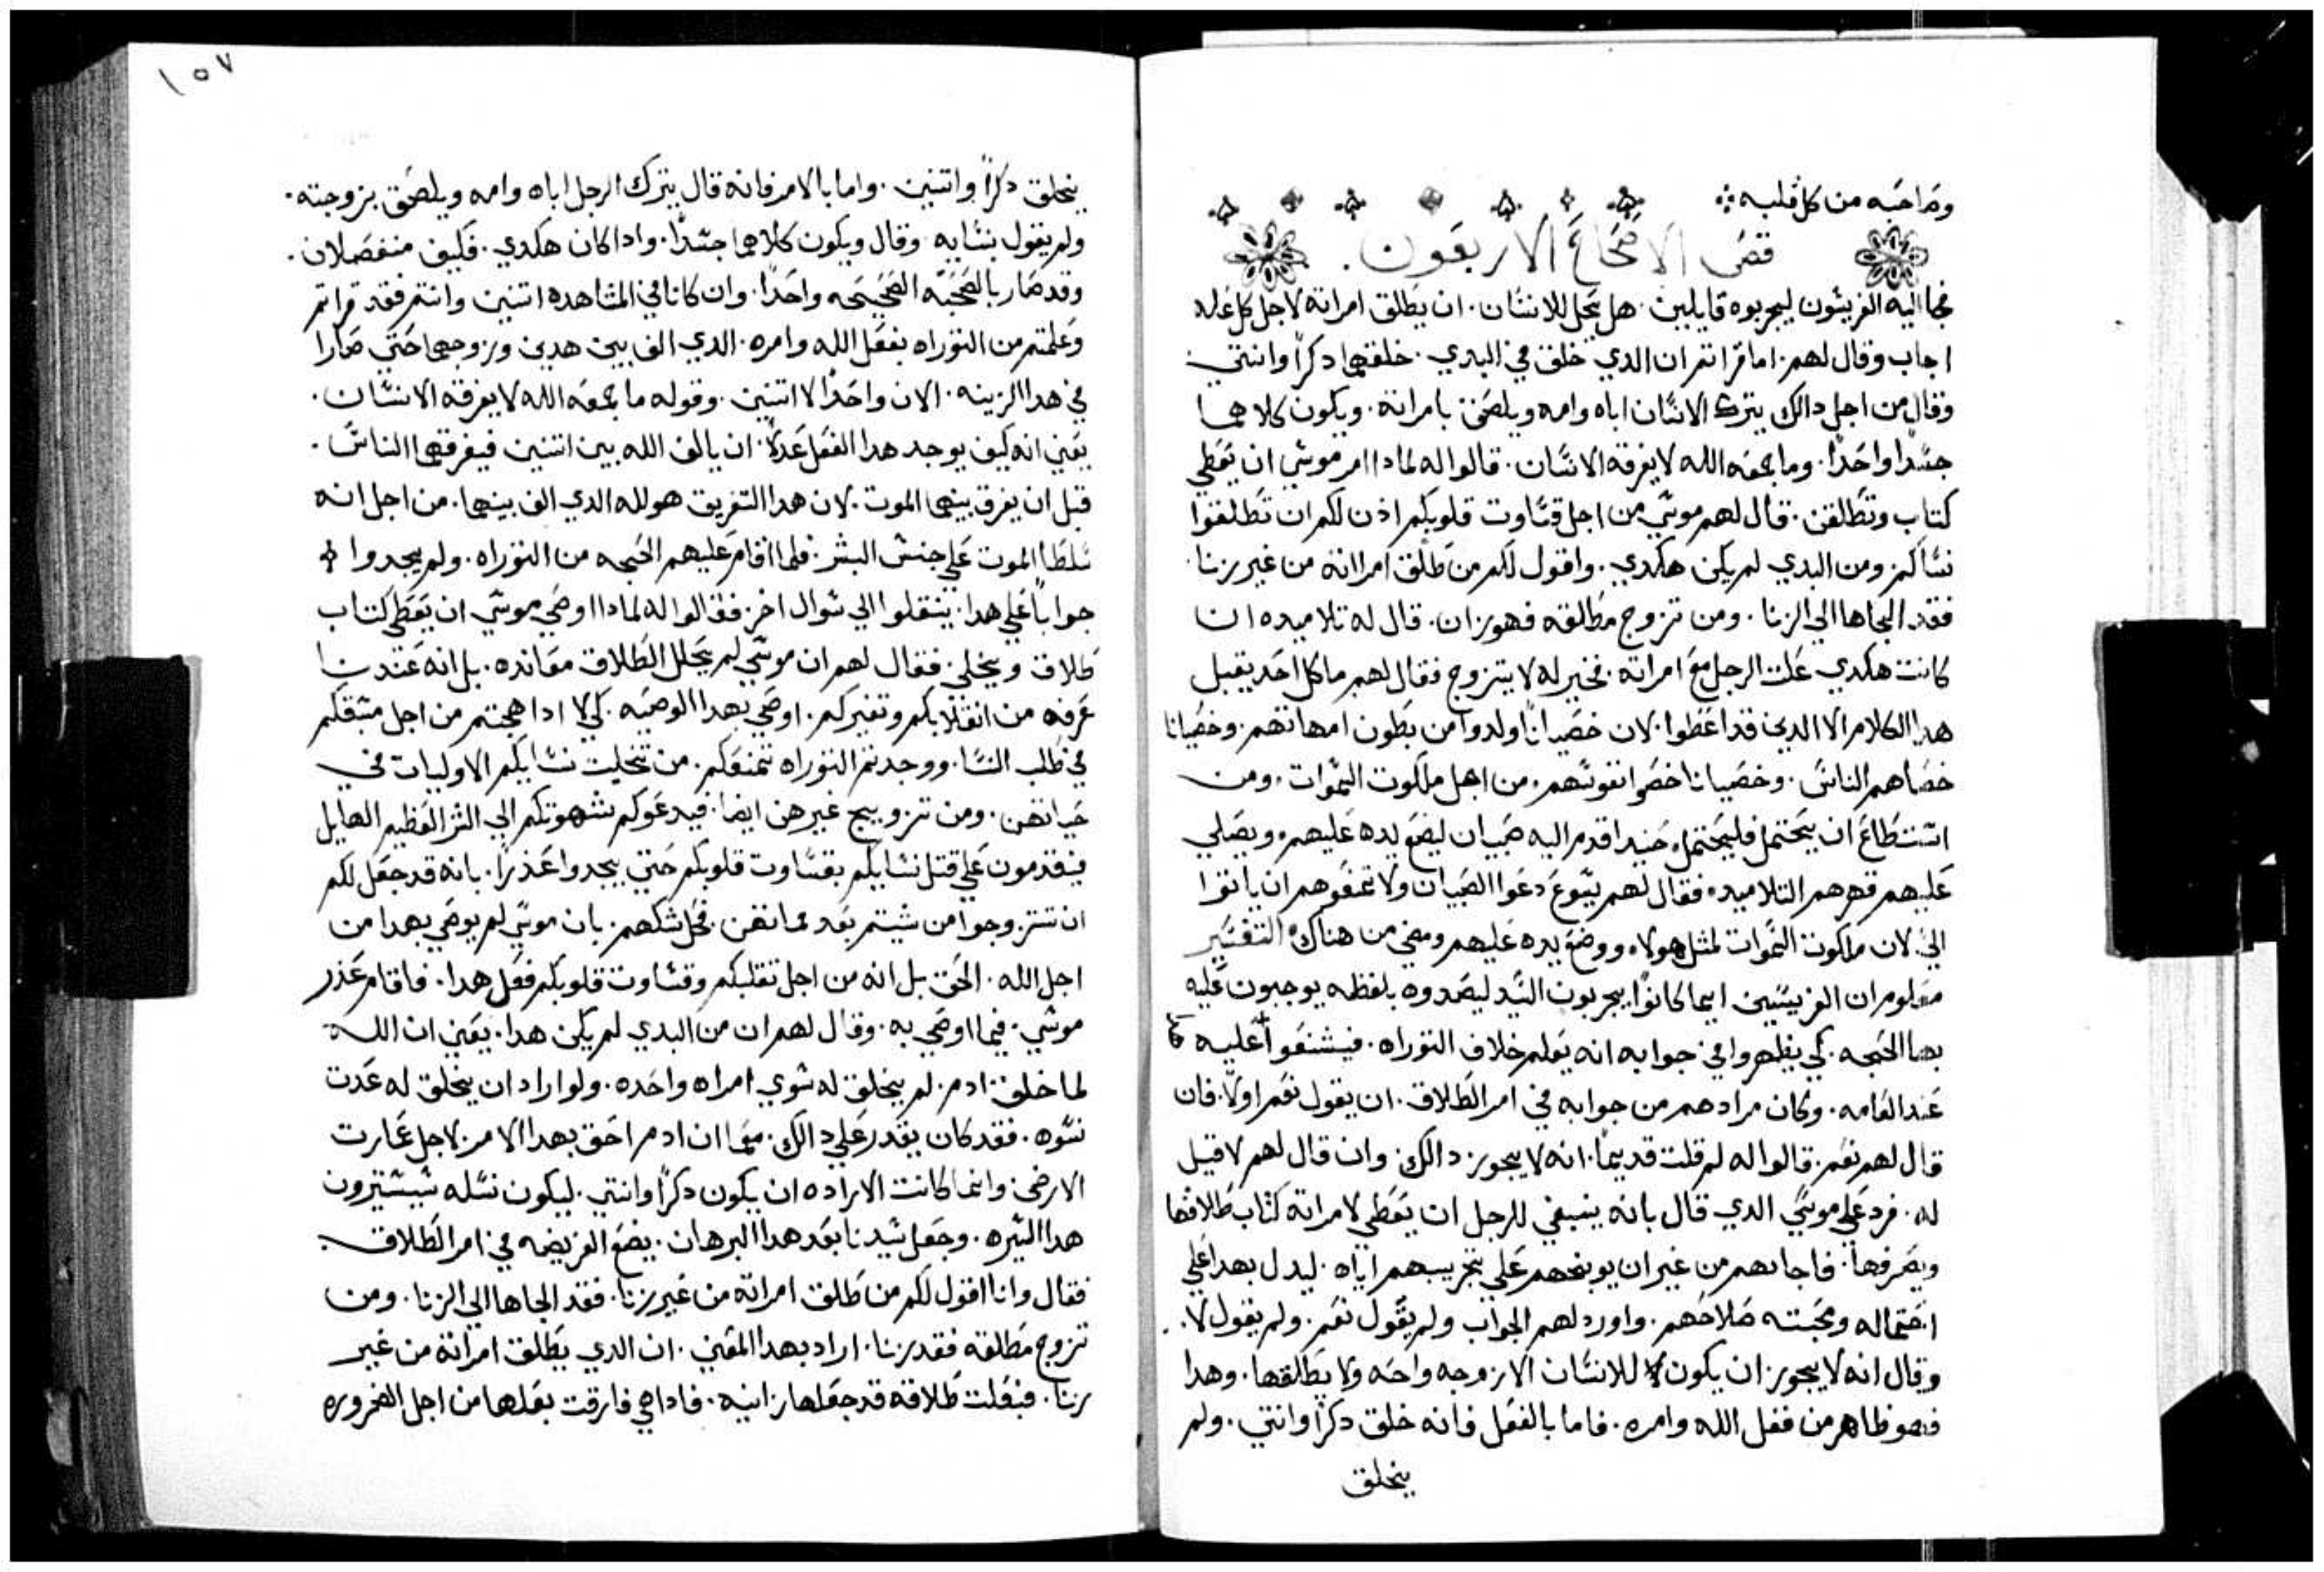 وصاحبه من كل قلبه
فص الاصحاح الاربعون.
فجا اليه الفريسون ليجربوه قايلين. هل يحل للانسان. ان يطلق امراته لاجل كل عله
اجاب وقال لهم. اما قراتم ان الدي خلق في البدي. خلقهما دكراً وانتي
وقال من اجل دالك يترك الانسان اباه وامه ويلصق بامراته. ويكون كلاهما
جسداً واحداً. وما جمعه الله لا يفرقه الانسان. قالوا له لمادا امر موسي ان يعطي
كتاب وتطلقن. قال لهم موسي من اجل قساوت قلوبكم اذن لكم ان تطلقوا
نساكم ومن البدي لم يكن هكدي. واقول لكم من طلق امراته من غير زنا
فقد الجاها الي الزنا. ومن تزوج مطلقه فهو زان. قال له تلاميده ان
كانت هكدي علت الرجل مع امراته. فخير له لا يتزوج فقال لهم ما كل احد يقبل
هدا الكلام الا الدين قد اعطوا. لان خصياناً ولدوا من بطون امهاتهم. وخصيانا
خصاهم الناس. وخصيانا خصوا نفوسهم. من اجل ملكوت السموات. ومن
استطاع ان يحتمل فليحتمل. حنيد اقدم اليه صبيان ليضع يده عليهم. ويصلي
عليهم فنهرهم التلاميد. فقال لهم يسوع دعوا الصبيان ولا تمنعوهم ان ياتوا
الي. لان ملكوت السموات لمثل هولاء ووضع يده عليهم ومضي من هناك التفسير
معلوم ان الفريسين ايما كانوا يجربون السيد ليصدوه بلفظه يوجبون عليه
بها الحجه. كي يظهروا في جوابه انه يعلم خلاف التوراه. فيشنعوا عليه
عند العامه. وكان مرادهم من جوابه في امر الطلاق. ان يقول نعم اولا. فان
قال لهم نعم. قالوا له لم قلت قديماً. انه لا يجوز دالك. وان قال لهم لا قيل
له. فرد علي موسي الدي قال بانه ينبغي للرجل ان يعطي لامراته كتاب طلاقها
ويصرفها. فاجابهم من غير ان يوبخهم علي تجريبهم اياه. ليدل بهدا علي
احتماله ومحبته صلاحهم. واورد لهم الجواب ولم يقول نعم. ولم يقول لا.
وقال انه لا يجوز ان يكون للانسان الا زوجه واحده ولا يطلقها. وهدا
فهو ظاهر من فعل الله وامره. فاما بالفعل فانه خلق دكراً وانتي. ولم
يخلق
١٥٧
يخلق دكراً واتنين. واما بالامر فانه قال يترك الرجل اباه وامه ويلصق بزوجته.
ولم يقول بنسايه وقال ويكون كلاهما جسداً. وادا كان هكدي. فكيف منفصلان.
وقد صار بالصحبه الصحيحه واحداً. وان كانا في المشاهده اتنين وانتم فقد قراتم
وعلمتم من التوراه بفعل الله وامره. الدي الف بين هدين وزوجهما حتي صارا
في هدا الزينه. الان واحداً لا اتنين. وقوله ما جمعه الله لا يفرقه الانسان.
يعني انه كيف يوجد هدا الفعل عدلاً. ان يالف الله بين اتنين فيفرقهما الناس.
قبل ان يفرق بينهما الموت. لان هدا التفريق هو لله الدي الف بينهما. من اجل انه
سلطا الموت علي جنس البشر. فلما اقام عليهم الحجه من التوراه. ولم يجدوا
جواباً علي هدا. ينتقلوا الي سوال اخر. فقالوا له لمادا اوصي موسي ان يعطي كتاب
طلاق ويخلي. فقال لهم ان موسي لم يحلل الطلاق معانده. بل انه عندنا
عرفه من انقلابكم وتغيركم. اوصي بهدا الوصيه. كي لا ادا هجتم من اجل مسقكم
في طلب النسا. ووجدتم التوراه تمنعكم. من تخليت نسايكم الاوليات في
حياتهن. ومن تزويج غيرهن ايضا. فيدعوكم شهوتكم الي الشر العظيم الهايل
فيقدمون علي قتل نسايكم بقساوت قلوبكم حتي يجدوا عذراً. بانه قد جعل لكم
ان تتزوجوا من شيتم بعد مماتهن. فحل شكهم. بان موسي لم يوصي بهدا من
اجل الله. الحق بل انه من اجل تقلبكم وقساوت قلوبكم فعل هدا. فاقام عذر
موسي. فيما اوصي به. وقال لهم ان من البدي لم يكن هدا. يعني ان الله
لما خلق ادم. لم يخلق له سوي امراه واحده. ولو اراد ان يخلق له عدت
نسوه. فقد كان يقدر علي دالك. مما ان ادم احق بهدا الامر. لاجل عمارت
الارض. وانما كانت الاراده ان يكون دكراً وانتي. ليكون نسله يسيرون
هدا السيره. وجعل سيدنا بعد هدا البرهان. يضع الفريضه في امر الطلاق.
فقال وانا اقول لكم من طلق امراته من غير زنا. فقد الجاها الي الزنا. ومن
تزوج مطلقه فقد زنا. اراد بهدا المعني. ان الدي يطلق امراته من غير
زنا. فبفعلت طلاقه قد جعلها زانيه. فادا هي فارقت بعلها من اجل الضروره